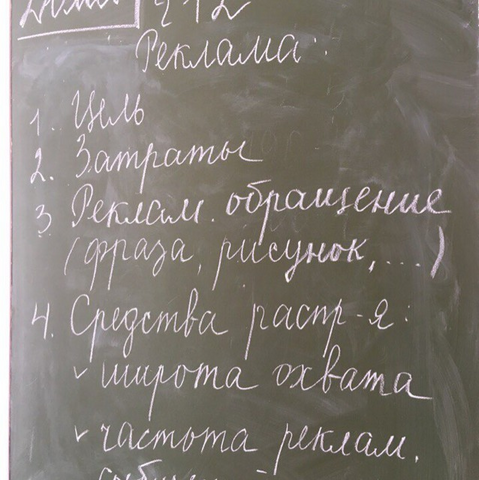 §12
Реклама:
1. Цель
2. Затраты
3. Реклам. обращение
(фраза, рисунок, ...)
4. Средства распр-я:
✓ широта охвата
✓ частота реклам.